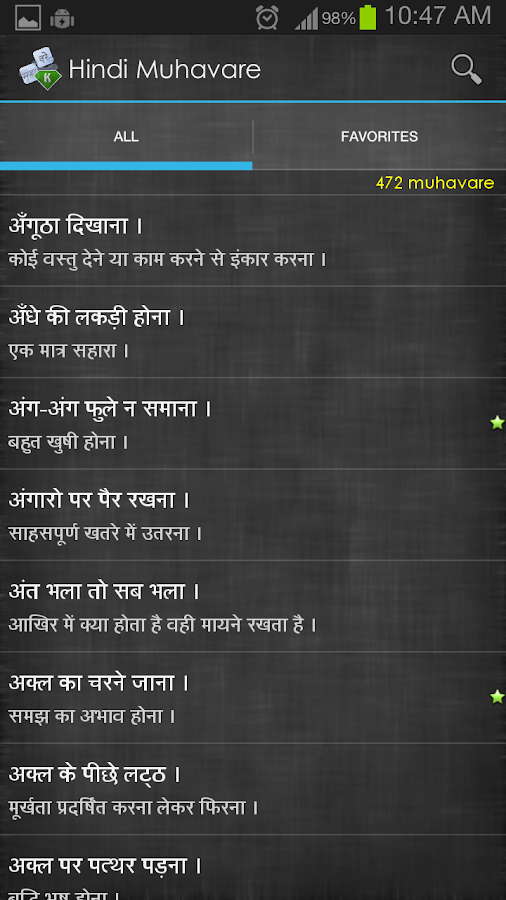 98% 10:47 AM
Hindi Muhavare
ALL FAVORITES
472 muhavare
अँगूठा दिखाना ।
कोई वस्तु देने या काम करने से इंकार करना ।
अँधे की लकड़ी होना ।
एक मात्र सहारा ।
अंग-अंग फुले न समाना ।
बहुत खुषी होना ।
अंगारो पर पैर रखना ।
साहसपूर्ण खतरे में उतरना ।
अंत भला तो सब भला ।
आखिर में क्या होता है वही मायने रखता है ।
अक्ल का चरने जाना ।
समझ का अभाव होना ।
अक्ल के पीछे लट्ठ ।
मूर्खता प्रदर्षित करना लेकर फिरना ।
अक्ल पर पत्थर पड़ना ।